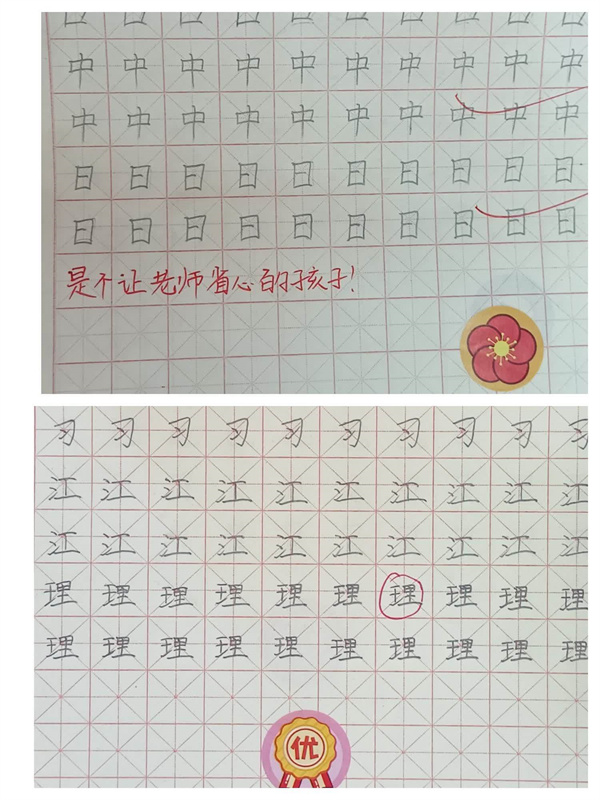 中 中 中 中 中 中 中 中 中 中
中 中 中 中 中 中 中 中 中 中
日 日 日 日 日 日 日 日 日 日
日 日 日 日 日 日 日 日 日 日
是不让老师省心的好孩子!
习 习 习 习 习 习 习 习 习 习
江 江 江 江 江 江 江 江 江 江
江 江 江 江 江 江 江 江 江 江
理 理 理 理 理 理 理 理 理 理
理 理 理 理 理 理 理 理 理 理
优